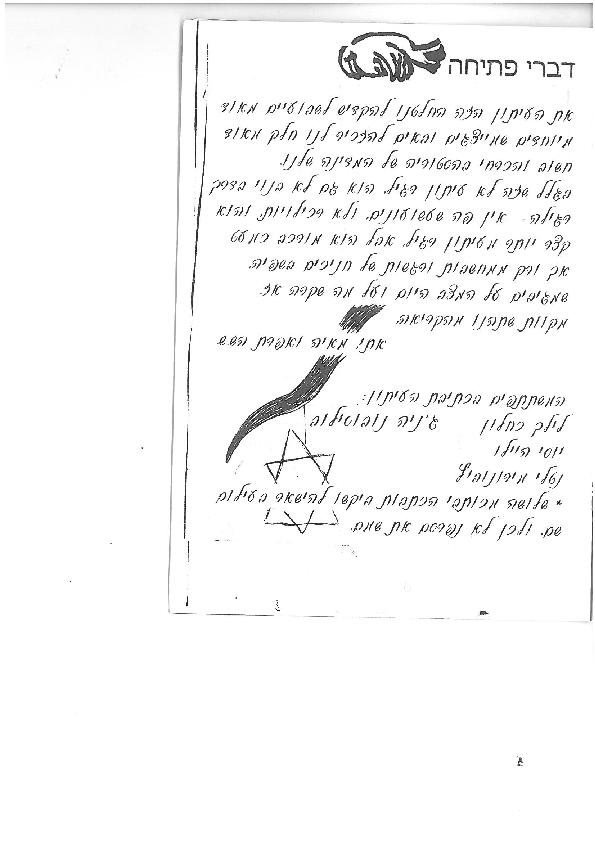 דברי פתיחה
את העיתון הזה החלטנו להקדיש לשבועיים מאוד
מיוחדים שמייצגים ובאים להזכיר לנו חלק מאוד
חשוב והכרחי בהסטוריה של המדינה שלנו.
בגלל שזה לא עיתון רגיל, הוא גם לא בנוי בדרך
רגילה - אין פה שעשועונים, ולא רכילויות, והוא
קצר יותר מעיתון רגיל, אבל הוא מורכב כמעט
אך ורק ממחשבות ורגשות של חניכים בשפיה
שמגיבים על המצב היום ועל מה שקרה אז.
מקוות שתהנו מהקריאה,
אתי, מאיה ואפרת השש
המשתתפים בכתיבת העיתון:
לילך כחלון ג'ניה נובוסילוב
יוסי היילו
נטלי מירונוביץ'
* שלושה מכותבי הכתבות ביקשו להישאר בעילום
שם, ולכן לא נפרסם את שמם.